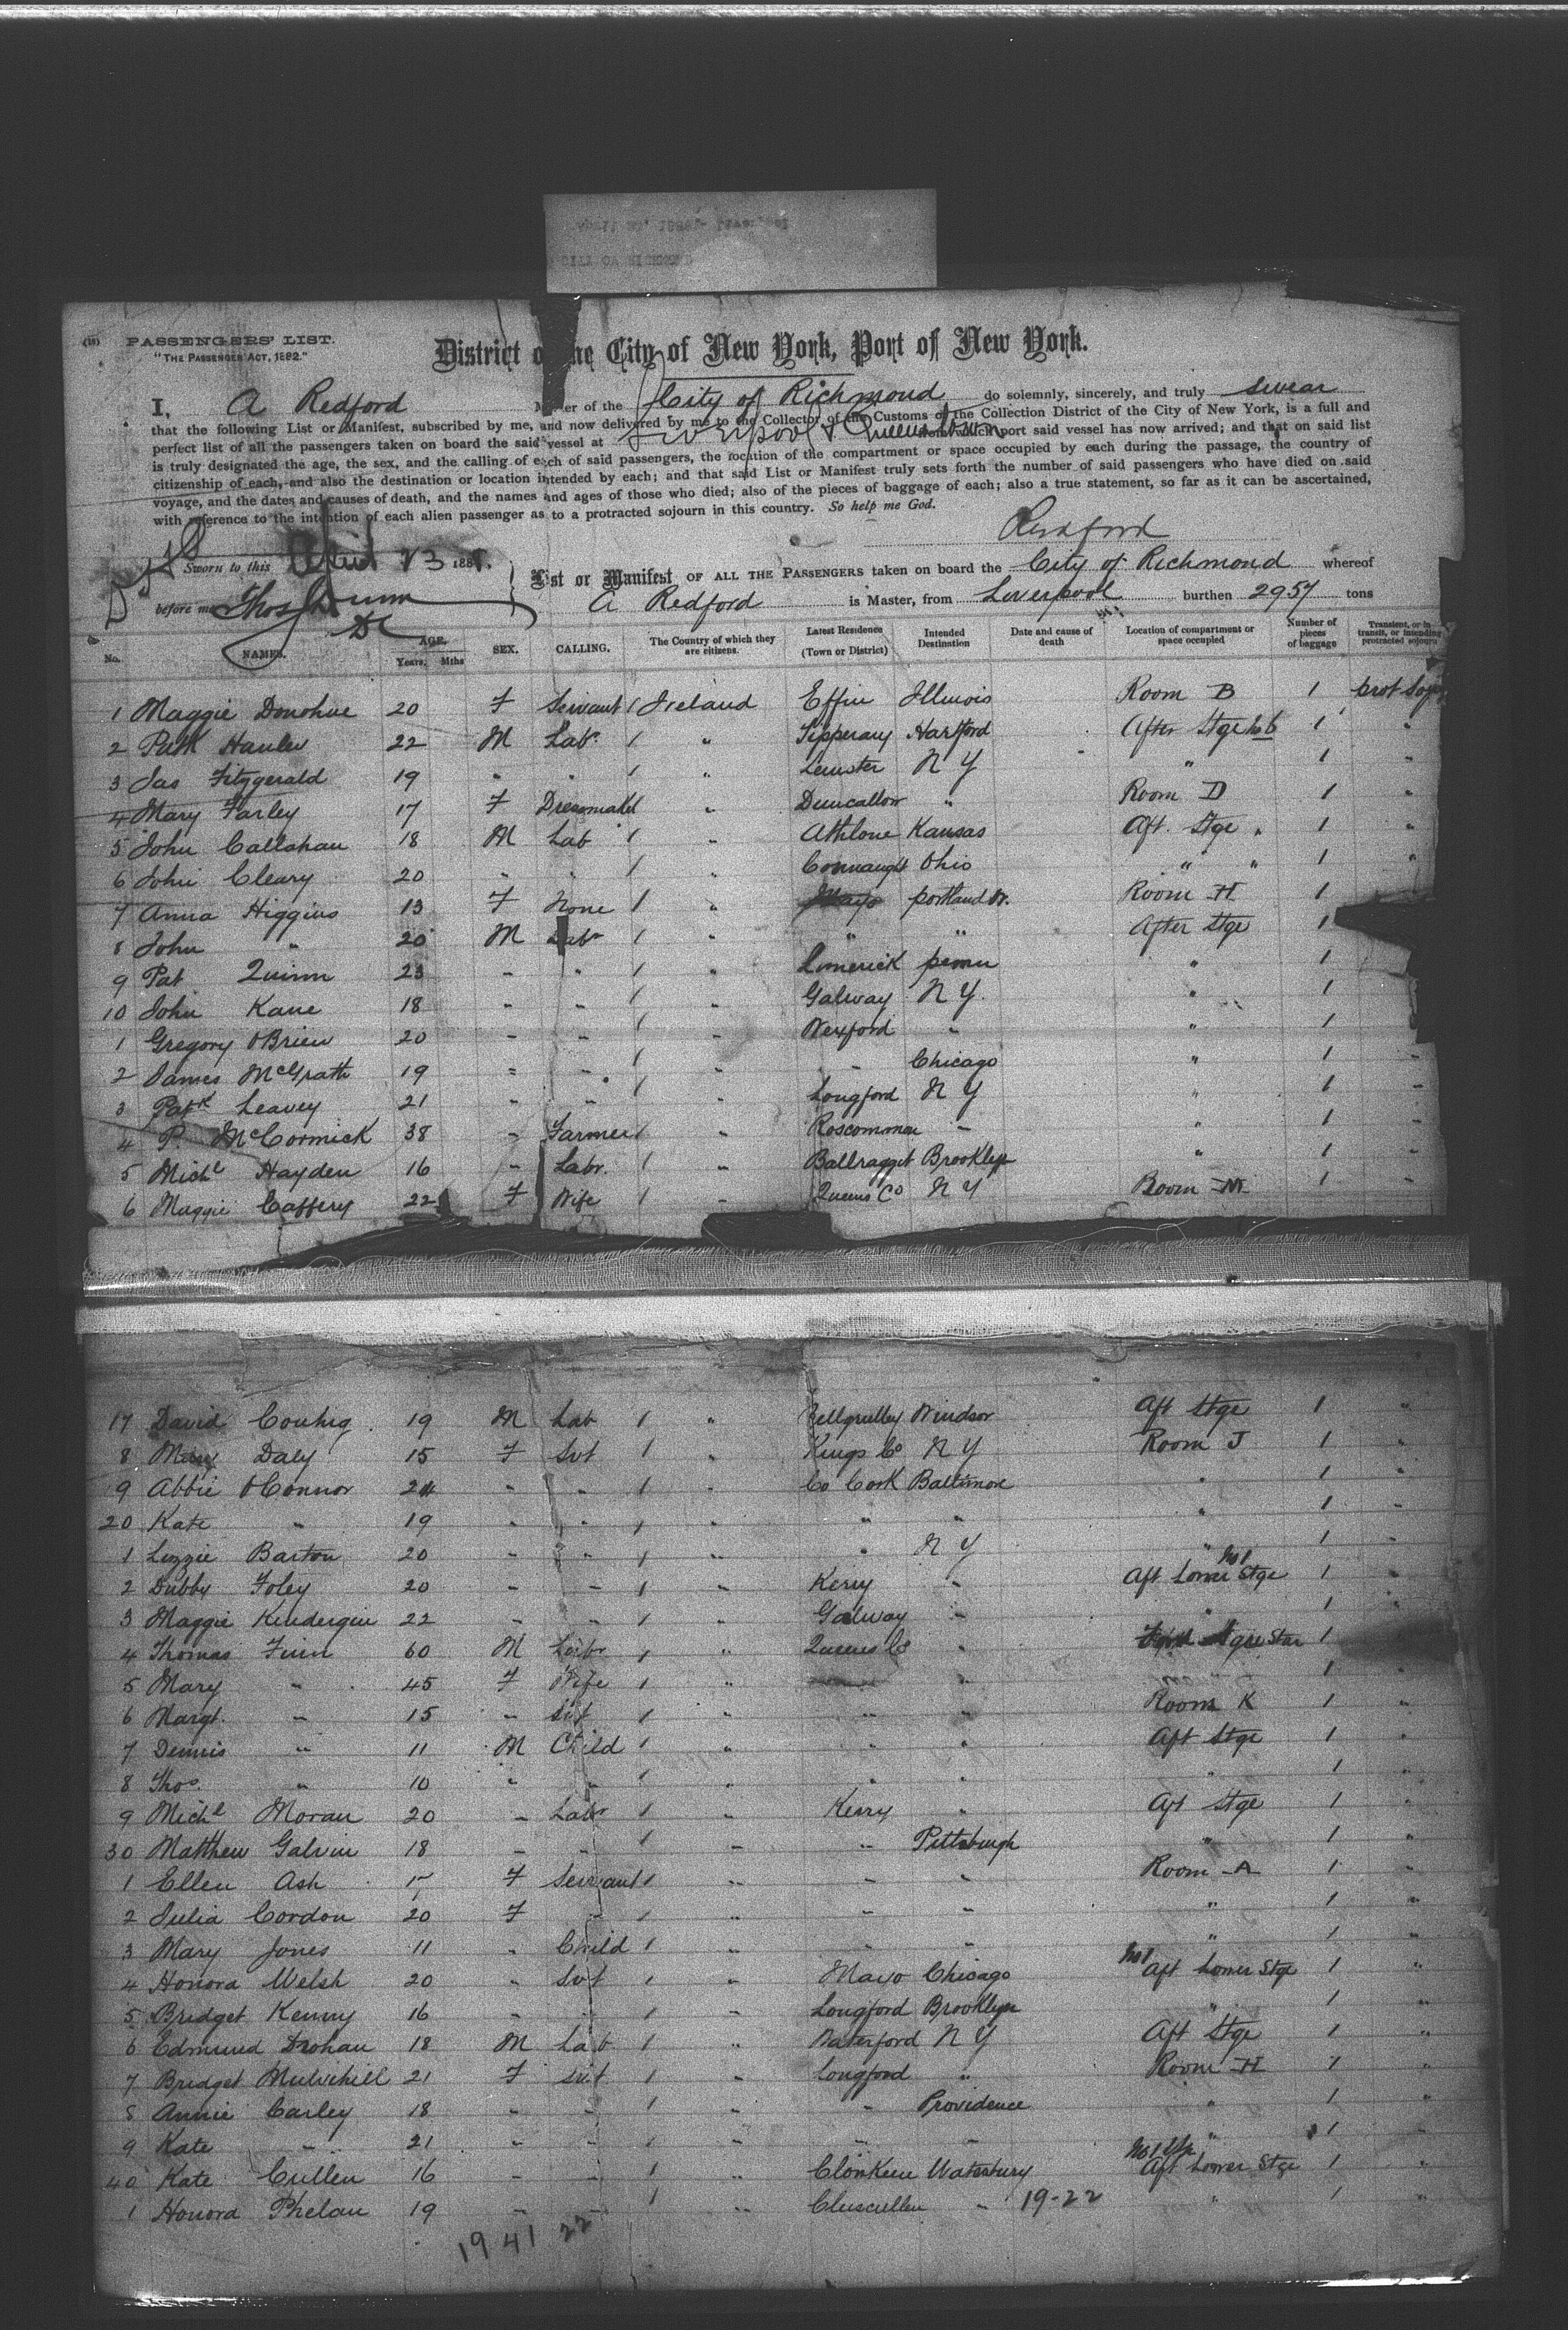 PASSENGERS' LIST.
"THE PASSENGER ACT, 1882."
District of the City of New York, Port of New York.
I, A Redford Master of the City of Richmond do solemnly, sincerely, and truly swear
that the following List or Manifest, subscribed by me, and now delivered by me to the Collector of the Customs of the Collection District of the City of New York, is a full and
perfect list of all the passengers taken on board the said vessel at Liverpool & Queenstown from which port said vessel has now arrived; and that on said list
is truly designated the age, the sex, and the calling of each of said passengers, the location of the compartment or space occupied by each during the passage, the country of
citizenship of each, and also the destination or location intended by each; and that said List or Manifest truly sets forth the number of said passengers who have died on said
voyage, and the dates and causes of death, and the names and ages of those who died; also of the pieces of baggage of each; also a true statement, so far as it can be ascertained,
with reference to the intention of each alien passenger as to a protracted sojourn in this country. So help me God.
Redford
Sworn to this April 23 188
before me Thos Dunn
List or Manifest OF ALL THE PASSENGERS taken on board the City of Richmond whereof
A Redford is Master, from Liverpool burthen 2957 tons
No. NAMES. AGE. Years. Mths SEX. CALLING. The Country of which they are citizens. Latest Residence (Town or District) Intended Destination Date and cause of death Location of compartment or space occupied Number of pieces of baggage Transient, or in transit, or intending protracted sojourn
1 Maggie Donohue 20 F Servant / Ireland Effin Illinois Room B 1 prot Soj
2 Patk Hanley 22 M Labr / " Tipperary Hartford After Stge 1 "
3 Jas Fitzgerald 19 " " / " Leinster N Y " 1 "
4 Mary Farley 17 F Dressmaker " " Room D 1 "
5 John Callahan 18 M Lab / " Athlone Kansas Aft. Stge " 1 "
6 John Cleary 20 " " / " Connaught Ohio " " 1 "
7 Anna Higgins 13 F None / " Mayo portland Room H 1
8 John " 20 M Labr / " " " After Stge 1
9 Pat Quinn 23 " " / " Limerick penn " 1
10 John Kane 18 " " / " Galway N Y. " 1
1 Gregory OBrien 20 " " / " Wexford " " 1
2 James McGrath 19 " " / " " Chicago " 1 "
3 Patk Leavey 21 " " / " Longford N Y " 1 "
4 P. McCormick 38 " Farmer / " Roscommon " " 1 "
5 Michl Hayden 16 " Labr. / " Ballragget Brooklyn " 1 "
6 Maggie Caffery 22 F Wife / " Queens Co N Y Room M 1 "
17 David Couhig 19 M Lab / " Windsor Aft Stge 1 "
8 Mary Daly 15 F Svt / " Kings Co N Y Room J 1 "
9 Abbie OConnor 24 " " / " Co Cork Baltimore " 1 "
20 Kate " 19 " " / " " " " 1 "
1 Lizzie Barton 20 " " / " " N Y " 1 "
2 Dubby Foley 20 " " / " Kerry " Aft Lower Stge No 1 1 "
3 Maggie Kindergin 22 " " / " Galway " " 1 "
4 Thomas Finn 60 M Labr / " Queens Co " 1
5 Mary " 45 F Wife / " " 1 "
6 Margt. " 15 " Svt / " " " Room K 1 "
7 Dennis " 11 M Child / " " " Aft Stge 1 "
8 Thos. " 10 " " / " " " " 1 "
9 Michl Moran 20 " Labr / " Kerry " Aft Stge 1 "
30 Matthew Galvin 18 " " / " " Pittsburgh " 1 "
1 Ellen Ash F Servant / " " " Room A 1 "
2 Julia Cordon 20 F " / " " " " 1 "
3 Mary Jones 11 " Child / " " " " 1 "
4 Honora Welsh 20 " Svt / " Mayo Chicago No 1 Aft Lower Stge 1 "
5 Bridget Kenny 16 " " / " Longford Brooklyn " 1 "
6 Edmund Drohan 18 M Lab / " Waterford N Y Aft Stge 1 "
7 Bridget Mulvihill 21 F Svt / " Longford " Room H 1 "
8 Annie Carley 18 " " / " " Providence " 1 "
9 Kate " 21 " " / " " " " 1 "
40 Kate Cullen 16 " " / " Clonkeen Waterbury No 1 Aft Lower Stge 1 "
1 Honora Phelan 19 " " / " " 19-22 " 1 "
19 41 22